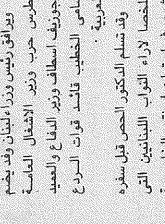 ويرافق رئيس وزراء لبنان وفد يضم
بطرس حرب وزير الاشغال العامة
جوزيف اسطاف وزير الدفاع والعميد
سامي الخطيب قائد قوات الردع
العربية
وقد تسلم الدكتور الحص قبل سفره
ملخصا لاراء النواب اللبنانيين التي